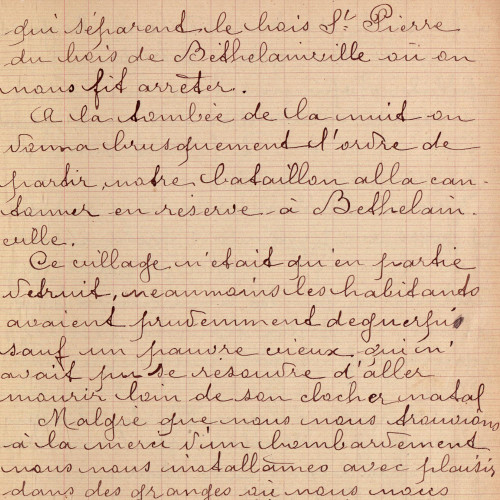 qui séparent le bois St. Pierre
du bois de Béthelainville où on
nous fit arrêter.
A la tombée de la nuit on
donna brusquement l'ordre de
partir, notre bataillon alla can-
tonner en réserve à Bethelain-
ville.
Ce village n'était qu'en partie
détruit, néanmoins les habitants
avaient prudemment déguerpis
sauf un pauvre vieux qui n'
avait pu se résoudre d'aller
mourir loin de son clocher natal
Malgré que nous nous trouvions
à la merci d'un bombardement
nous nous installâmes avec plaisir
dans des granges où nous nous